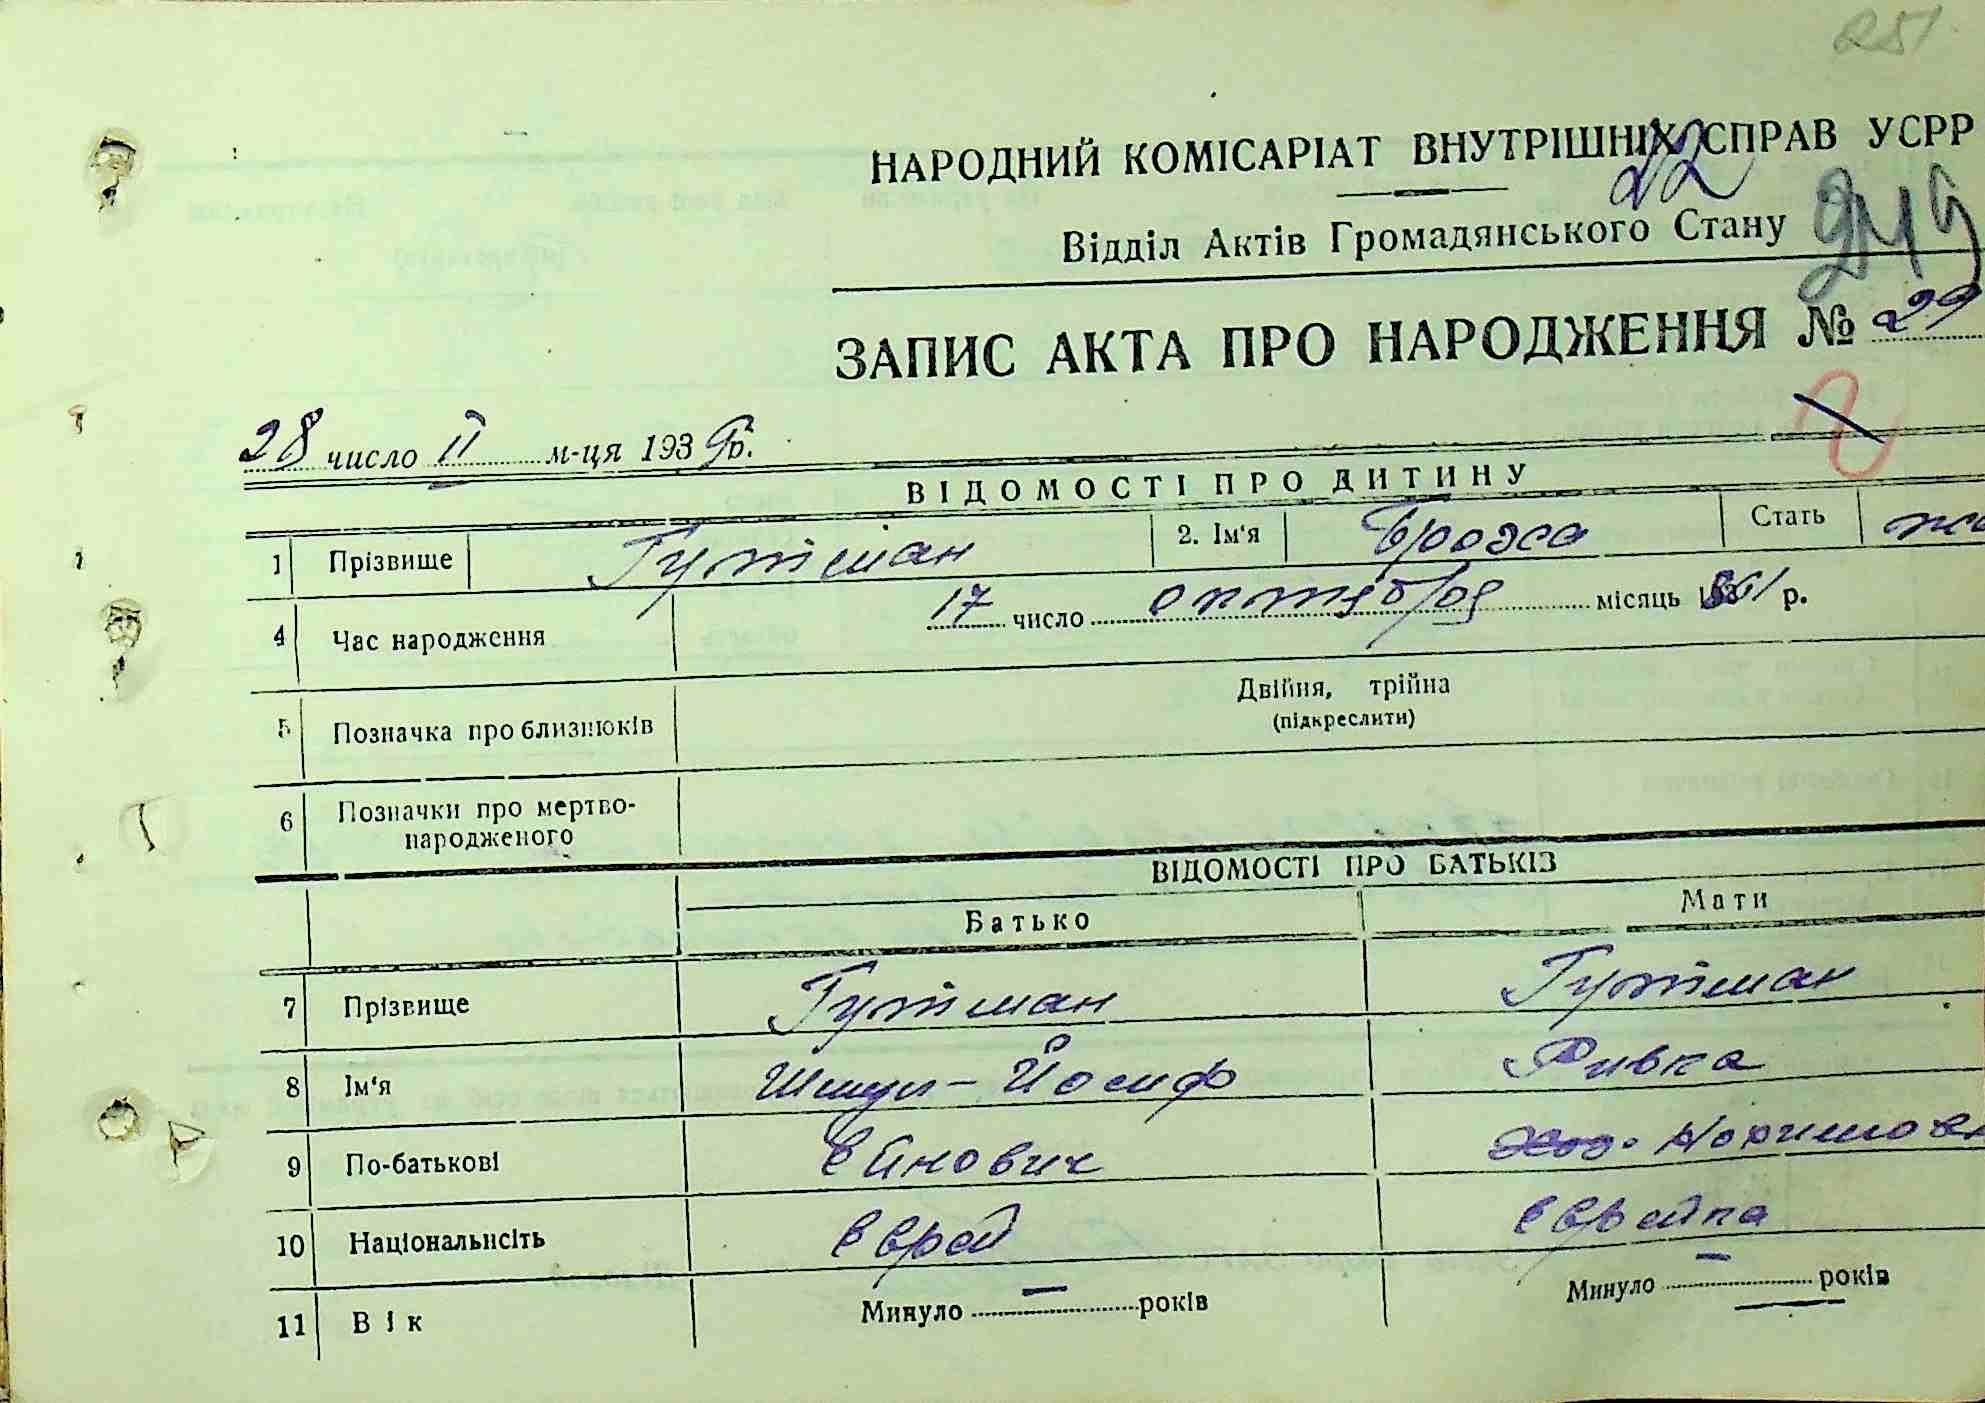 251
НАРОДНИЙ КОМІСАРІАТ ВНУТРІШНІХ СПРАВ УСРР
22
Відділ Актів Громадянського Стану
ЗАПИС АКТА ПРО НАРОДЖЕННЯ № 29
28 число II м-ця 193
ВІДОМОСТІ ПРО ДИТИНУ
1 Прізвище Гутман 2. Ім'я Стать
4 Час народження 17 число октября місяць р.
5 Позначка про близнюків Двійня, трійна
(підкреслити)
6 Позначки про мертво-
народженого
ВІДОМОСТІ ПРО БАТЬКІВ
Батько Мати
7 Прізвище Гутман Гутман
8 Ім'я Шмул-Йосиф Ривка
9 По-батькові Ейнович
10 Національнсіть Еврей Еврейка
11 Вік Минуло — років Минуло — років